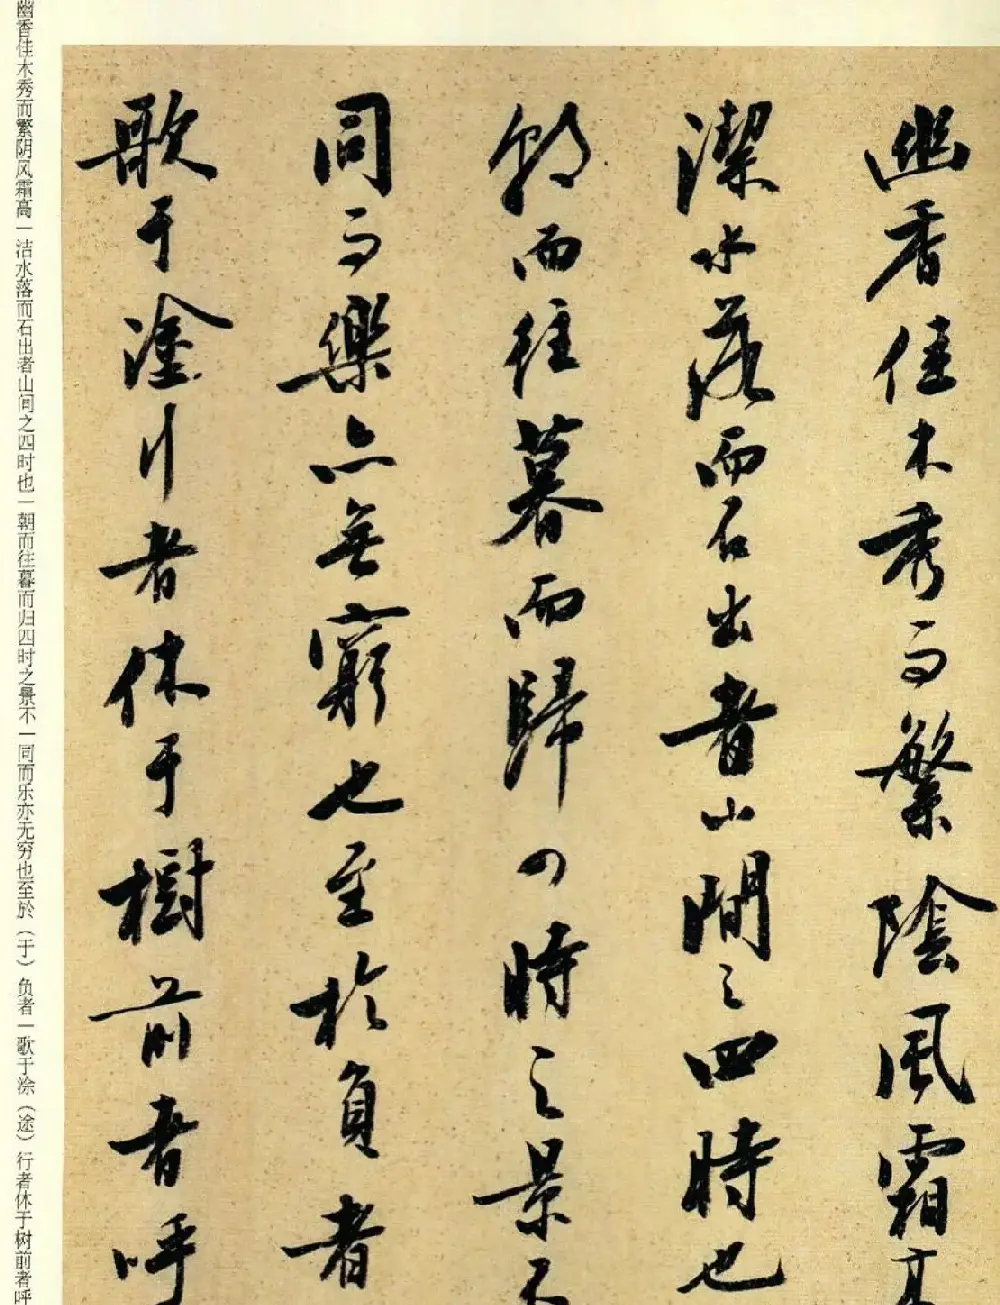 幽香佳木秀而繁陰風霜高
潔水落而石出者山間之四時也
朝而往暮而歸四時之景不
同而樂亦無窮也至於負者
歌于塗行者休于樹前者呼
幽香佳木秀而繁阴风霜高一洁水落而石出者山间之四时也一朝而往暮而归四时之景不一同而乐亦无穷也至於（于）负者一歌于涂（途）行者休于树前者呼